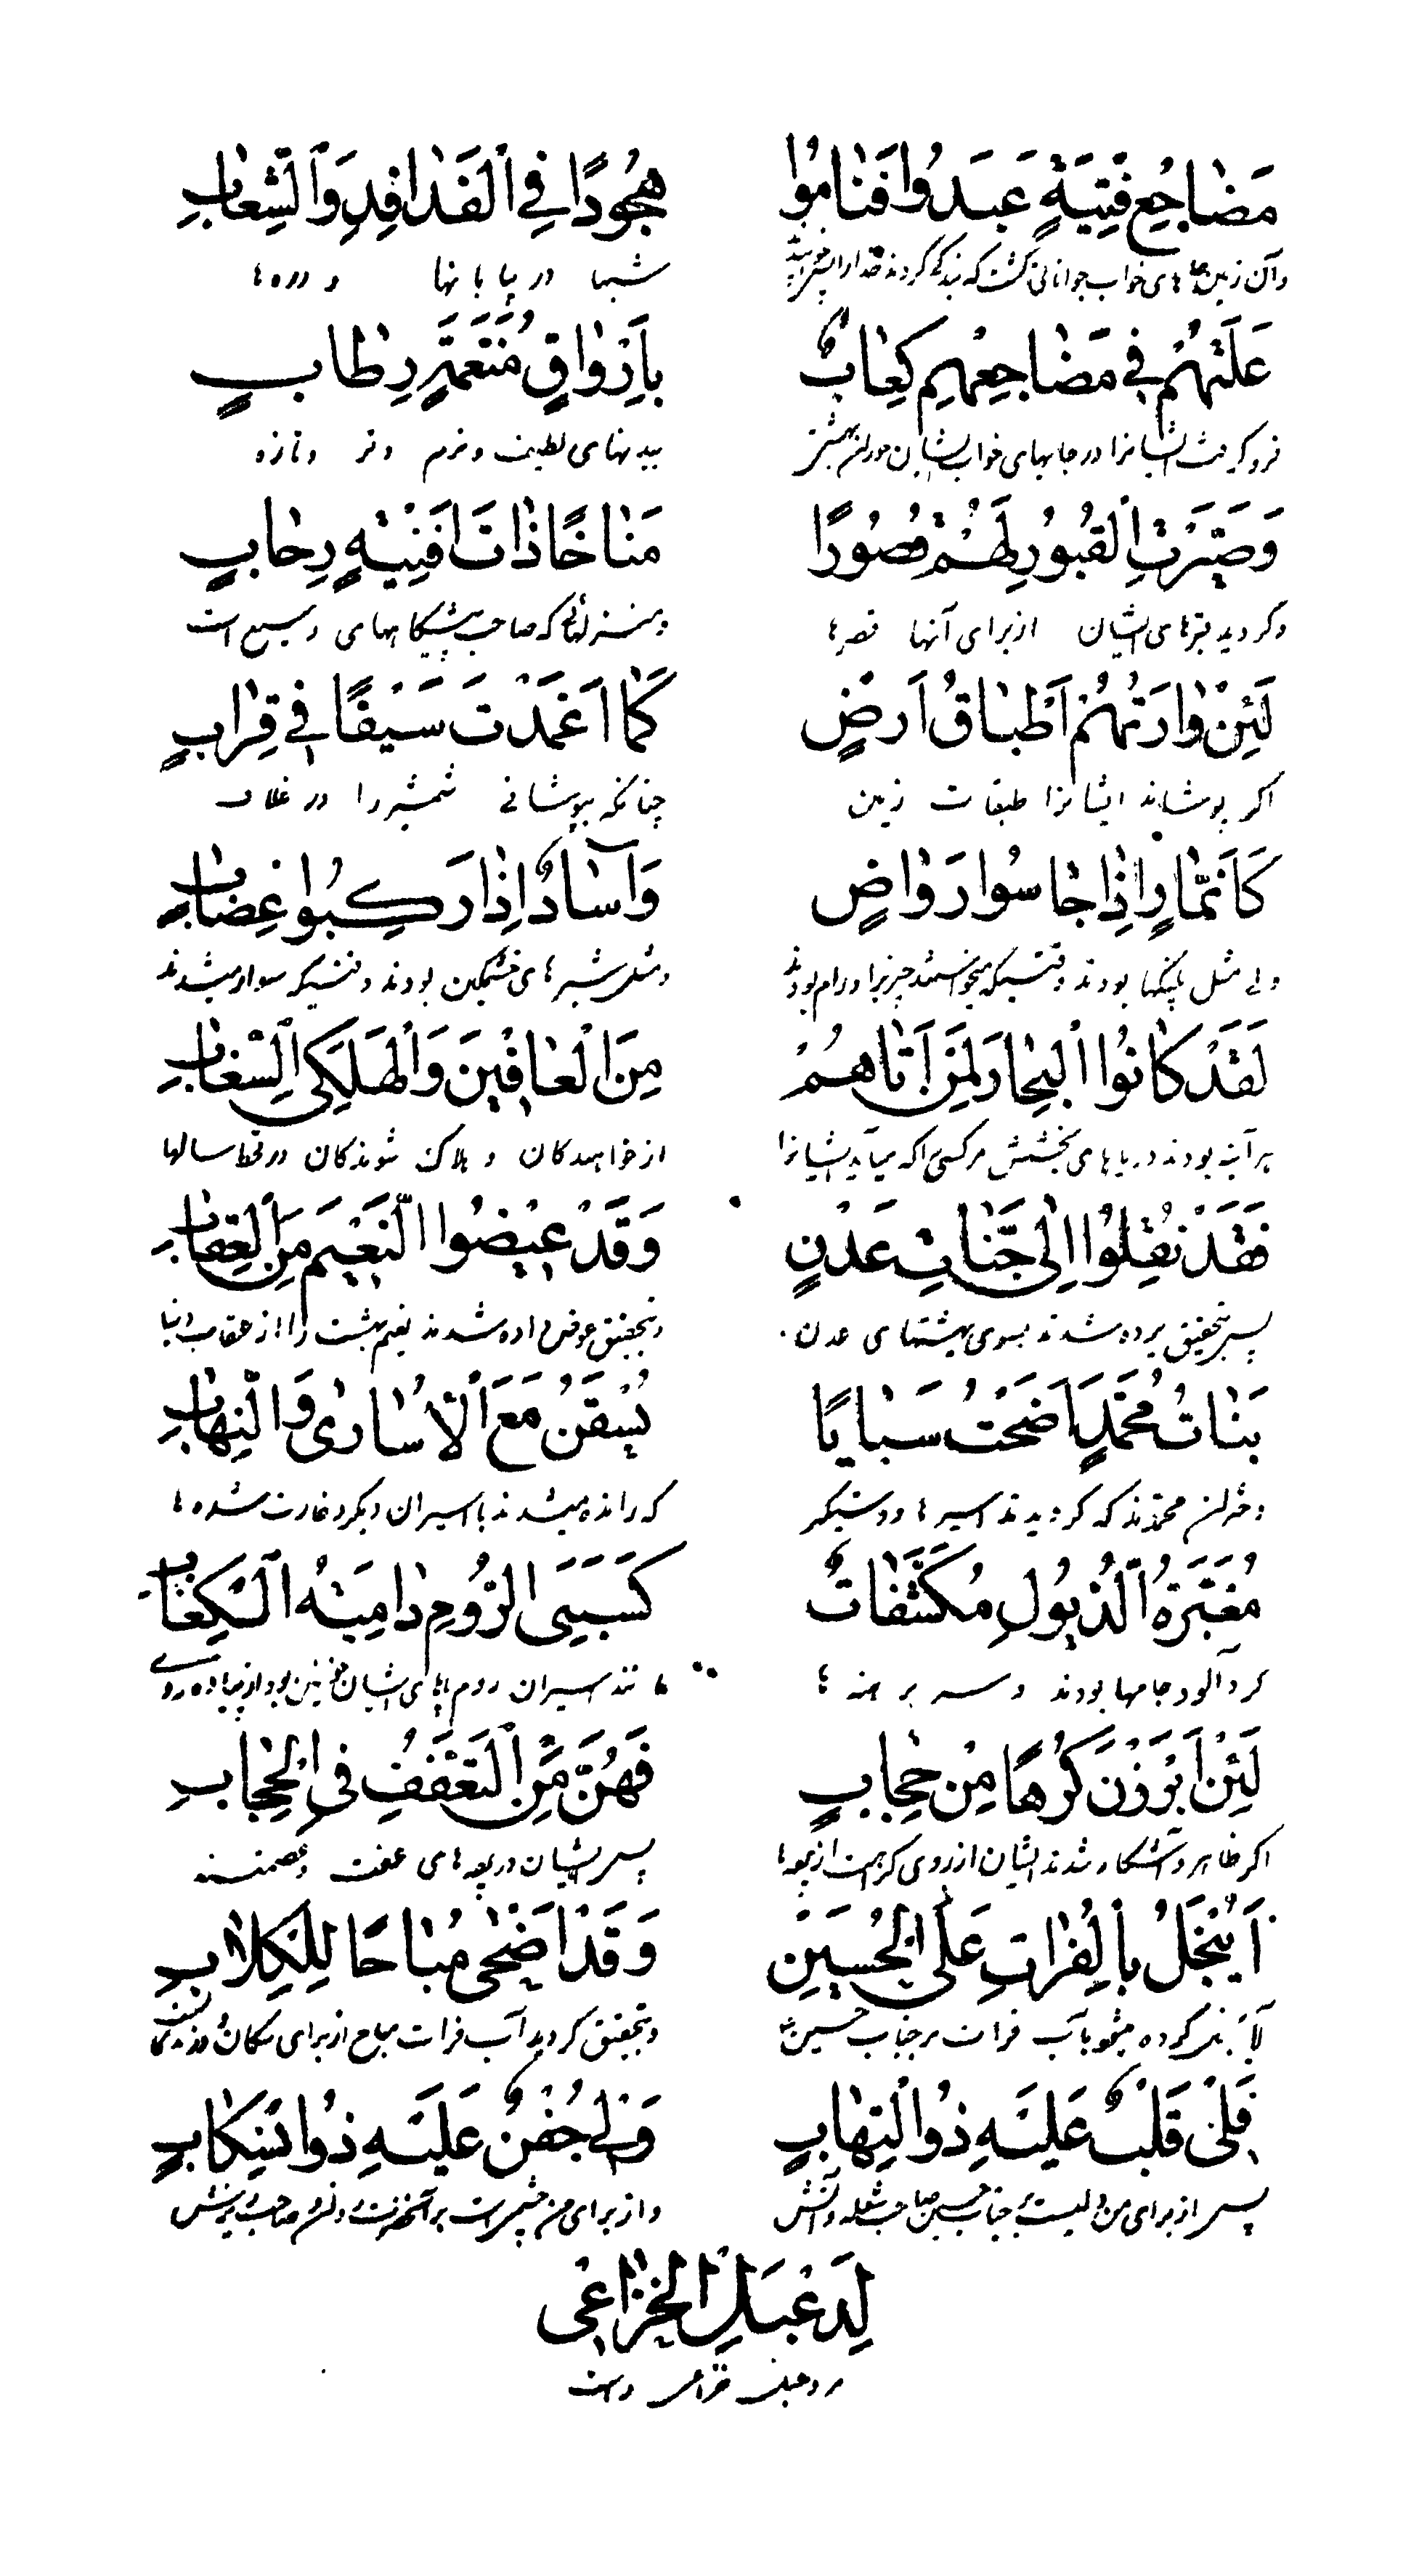 مَضاجِعُ فِتْيَةٍ عَبَدُوا فَنامُوا هُجُودًا فِي الْفَدافِدِ وَالشِّعابِ
وآن زمین های خواب جوانانی کشت که بندگی کردند خدا را پس شبها در بیابانها و دره ها
عَلَتْهُمْ فِي مَضاجِعِهِم كِعابٌ بِاَرْواقٍ مُنَعَّمَةٍ رِطابٍ
فرو کرفت ایشانرا در جایهای خواب ایشان حوران ببدنهای لطیف ونرم وتر وتازه
وَصُيِّرَتِ الْقُبُورُ لَهُمْ قُصُورًا مَناخًا ذاتَ اَفْنِيَةٍ رِحابٍ
وکردید قبرهای ایشان از برای آنها قصرها که صاحب پیشکاههای وسیع است
لَئِنْ وارَتْهُمُ اَطْباقُ اَرْضٍ كَما اَغْمَدْتَ سَيْفًا فِي قِرابٍ
اکر پوشاند ایشانرا طبقات زمین چنانکه بپوشانی شمشیر را در غلاف
كَاَنْمارٍ اِذا جاسُوا رَواضٍ وَآسادٌ اِذا رَكِبُوا غِضابٍ
ولی مثل پلنکها بودند وقتیکه ورام بودند ومثل شیرهای خشمکین بودند وقتیکه سوار میشدند
لَقَدْ كانُوا الْبِحارَ لِمَنْ اَتاهُمْ مِنَ الْعافِينَ وَالْهَلْكَى السِّغابِ
هرآینه بودند دریاهای بخشش هرکسی را که میآید ایشانرا از خواهندکان و هلاک شوندکان در قحط سالها
فَقَدْ نُقِلُوا اِلى جَنّاتِ عَدْنٍ وَقَدْ عِيضُوا النَّعِيمَ مِنَ الْعِقابِ
پس بتحقیق برده شدند بسوی بهشتهای عدن وبتحقیق عوض داده شدند نعیم بهشت را از عقاب دنیا
بَناتُ مُحَمَّدٍ اَضْحَتْ سَبايًا يُسَقْنَ مَعَ الْاُسارى وَالنِّهابِ
دختران محمدند که کردیدند اسیرها ودستکیر که رانده میشدند با اسیران دیکر وغارت شده ها
مُغَبَّرَةُ الذُّيُولِ مُكَشَّفاتٌ كَسَبْيِ الرُّومِ دامِيَةُ الْكِعابِ
کرد آلود جامها بودند وسر برهنه ها مانند اسیران روم پاهای ایشان خونین بود از پیاده روی
لَئِنْ اُبْرِزْنَ كُرْهًا مِنْ حِجابٍ فَهُنَّ مِنَ التَّعَفُّفِ فِي الْحِجابِ
اکر ظاهر وآشکار شدند ایشان از روی کراهت از پرده ها پس ایشان در پرده های عفت وعصمتند
اَيُبْخَلُ بِالْفُراتِ عَلَى الْحُسَيْنِ وَقَدْ اَضْحى مُباحًا لِلْكِلابِ
آیا بخل کرده میشود بآب فرات بر جناب حسین وبتحقیق کردید آب فرات مباح از برای سکان
فَلِي قَلْبٌ عَلَيْهِ ذُو الْتِهابٍ وَلِي جُفْنٌ عَلَيْهِ ذُو انْسِكابٍ
پس از برای من دلیست بر جناب حسین صاحب شعله وآتش واز برای من چشمی است بر آنحضرت صاحب ریزش
لِدِعْبِلِ الْخُزاعِي
مر دعبل خزاعی راست